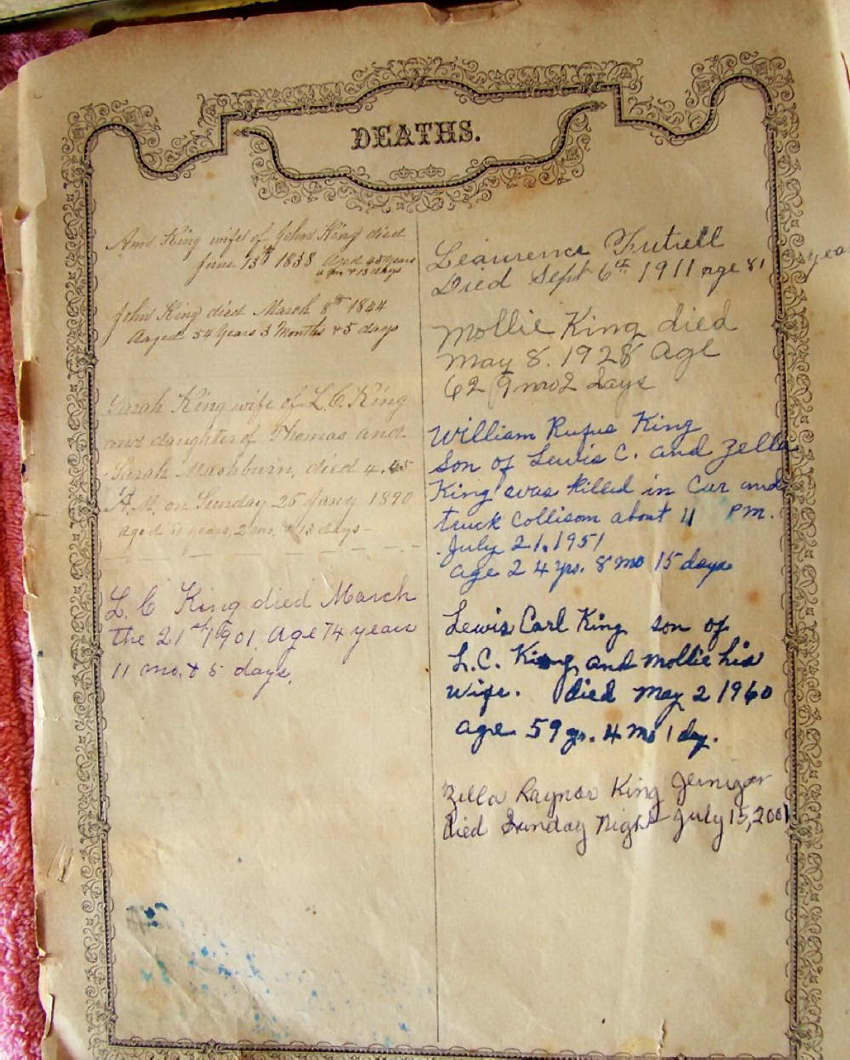 DEATHS.
Ann King wife of John King died
June 13th 1838 Aged 48 years
& 13 days
John King died March 8th 1844
Aaged 54 Years 3 Months & 5 days
Sarah King wife of L. C. King
and daughter of Thomas and
Sarah Mashburn, died 4.45
P.M. on Sunday 25 Jany 1890
aged years, 2 mo, & 13 days
L. C King died March
the 21st 1901. Age 74 years
11 mo. & 5 days.
Died Sept 6th 1911 age 81 years
Mollie King died
May 8. 1928 Age
62 9 mo 2 days
William Rufus King
Son of Lewis C. and Zella
King was killed in Car and
truck Collison about 11 PM.
July 21, 1951
age 24 yrs. 8 mo 15 days
Lewis Carl King son of
L.C. King and Mollie his
wife. died May 2 1960
age 59 yr. 4 mo 1 day.
Zella Raynor King
died Sunday Night July 15, 2001